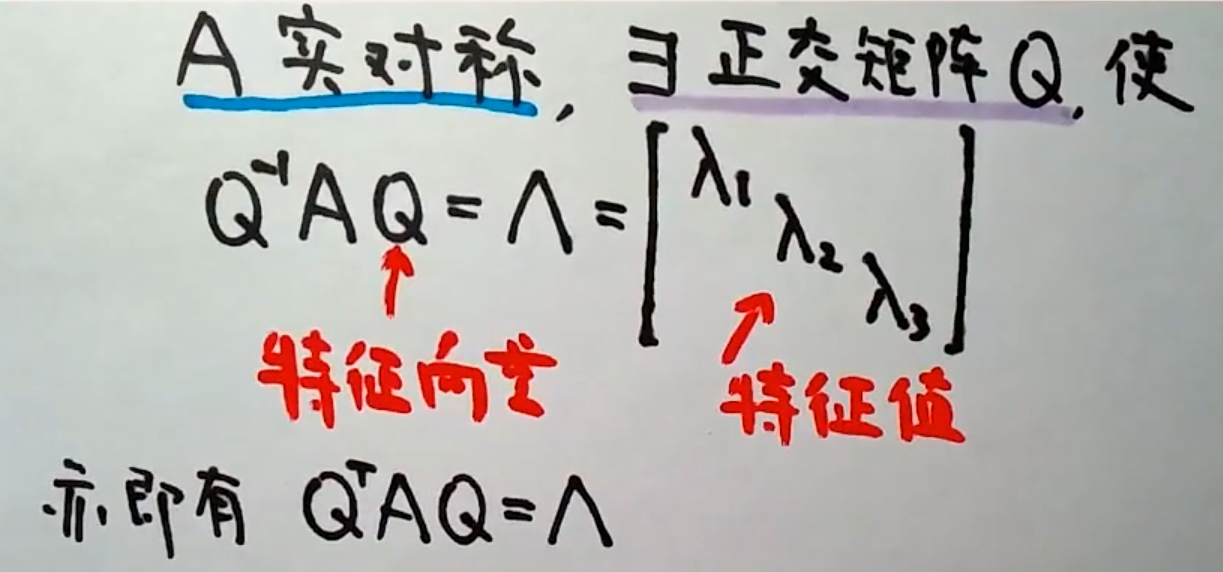 A 实对称, ∃ 正交矩阵 Q, 使
Q⁻¹AQ = Λ = [λ₁ λ₂ λ₃]
特征向量
特征值
亦即有 QᵀAQ = Λ